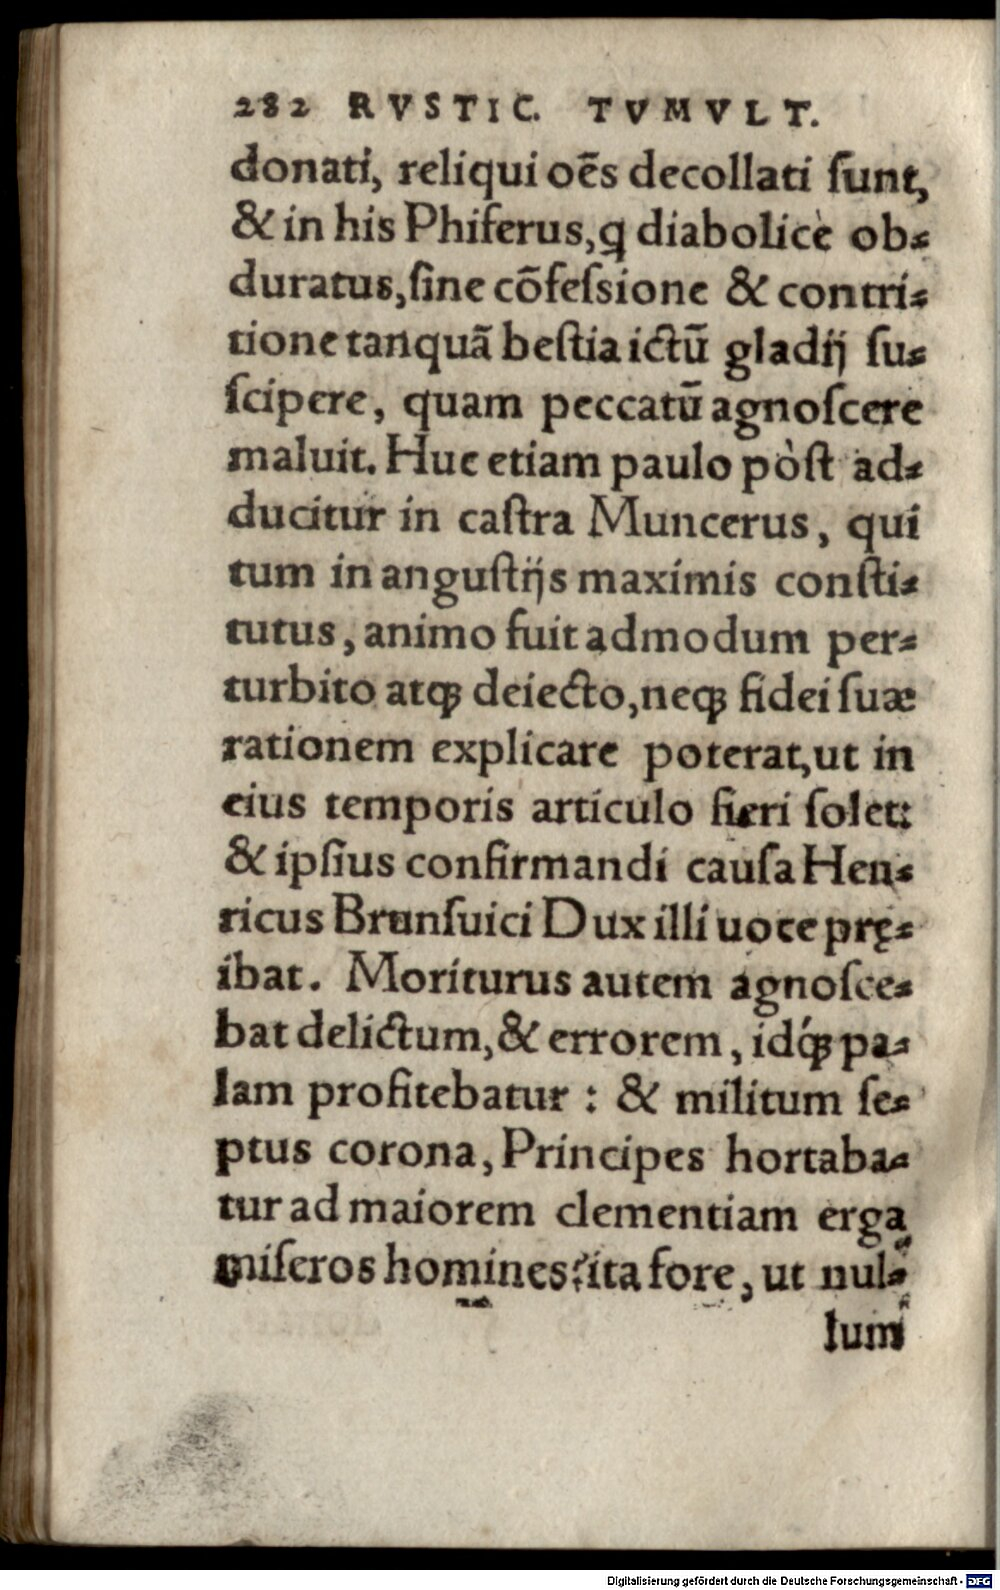 282 RVSTIC. TVMVLT.
donati, reliqui oẽs decollati ſunt,
& in his Phiferus, ꝗ diabolicè ob⸗
duratus, ſine cõfeſsione & contri⸗
tione tanquã beſtia ictũ gladij ſu⸗
ſcipere, quam peccatũ agnoſcere
maluit. Huc etiam paulo pòſt ad⸗
ducitur in caſtra Muncerus, qui
tum in anguſtijs maximis conſti⸗
tutus, animo fuit admodum per⸗
turbito atq; deiecto, neq; fidei ſuæ
rationem explicare poterat, ut in
eius temporis articulo fieri ſolet:
& ipſius confirmandi cauſa Hen⸗
ricus Brunſuici Dux illi uoce prę⸗
ibat. Moriturus autem agnoſce⸗
bat delictum, & errorem, idq́; pa⸗
lam profitebatur : & militum ſe⸗
ptus corona, Principes hortaba⸗
tur ad maiorem clementiam erga
miſeros homines: ita fore, ut nul⸗
lum
Digitalisierung gefördert durch die Deutsche Forschungsgemeinschaft - DFG